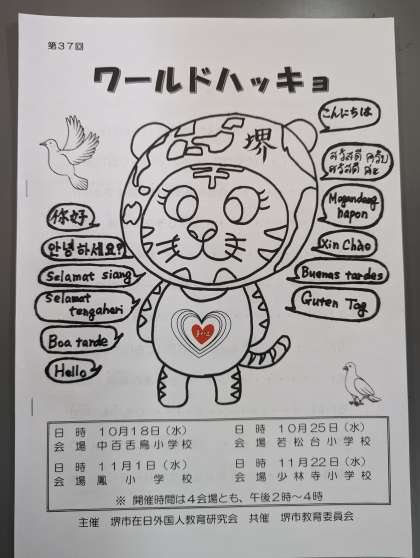 第37回
ワールドハッキョ
堺
こんにちは
สวัสดี ครับ
สวัสดี ค่ะ
你好
Magandang
hapon
안녕하세요?
Xin Chào
Selamat siang
Buenas tardes
Selamat
tengahari
Guten Tag
Boa tarde
Hello
日 時 10月18日(水)
会 場 中百舌鳥小学校
日 時 10月25日(水)
会 場 若松台小学校
日 時 11月1日(水)
会 場 鳳小学校
日 時 11月22日(水)
会 場 少林寺小学校
※ 開催時間は4会場とも、午後2時~4時
主催 堺市在日外国人教育研究会 共催 堺市教育委員会